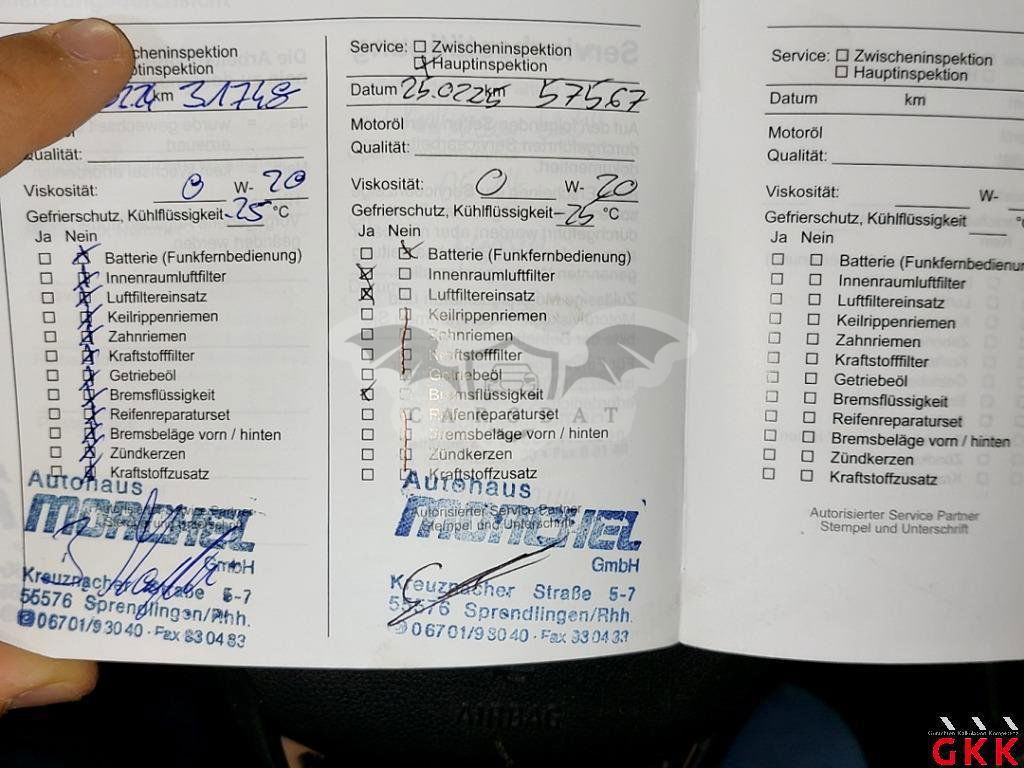 cheninspektion
ptinspektion
km 31748
Motoröl
Qualität:
Viskosität: 0 W-20
Gefrierschutz, Kühlflüssigkeit -25 °C
Ja Nein
Batterie (Funkfernbedienung)
Innenraumluftfilter
Luftfiltereinsatz
Keilrippenriemen
Zahnriemen
Kraftstofffilter
Getriebeöl
Bremsflüssigkeit
Reifenreparaturset
Bremsbeläge vorn / hinten
Zündkerzen
Kraftstoffzusatz
Autohaus
Autorisierter Service Partner
Stempel und Unterschrift
GmbH
Kreuznacher Straße 5-7
55576 Sprendlingen/Rhh.
06701/93040 · Fax 930433
Service: Zwischeninspektion
Hauptinspektion
Datum 25.02.25 km 57567
Motoröl
Qualität:
Viskosität: 0 W-20
Gefrierschutz, Kühlflüssigkeit -25 °C
Ja Nein
Batterie (Funkfernbedienung)
Innenraumluftfilter
Luftfiltereinsatz
Keilrippenriemen
Zahnriemen
Kraftstofffilter
Getriebeöl
Bremsflüssigkeit
Reifenreparaturset
Bremsbeläge vorn / hinten
Zündkerzen
Kraftstoffzusatz
Autohaus
Autorisierter Service Partner
Stempel und Unterschrift
GmbH
Kreuznacher Straße 5-7
55576 Sprendlingen/Rhh.
06701/93040 · Fax 930433
Service: Zwischeninspektion
Hauptinspektion
Datum km
Motoröl
Qualität:
Viskosität: W-
Gefrierschutz, Kühlflüssigkeit
Ja Nein
Batterie (Funkfernbedienun
Innenraumluftfilter
Luftfiltereinsatz
Keilrippenriemen
Zahnriemen
Kraftstofffilter
Getriebeöl
Bremsflüssigkeit
Reifenreparaturset
Bremsbeläge vorn / hinten
Zündkerzen
Kraftstoffzusatz
Autorisierter Service Partner
Stempel und Unterschrift
AIRBAG
GKK